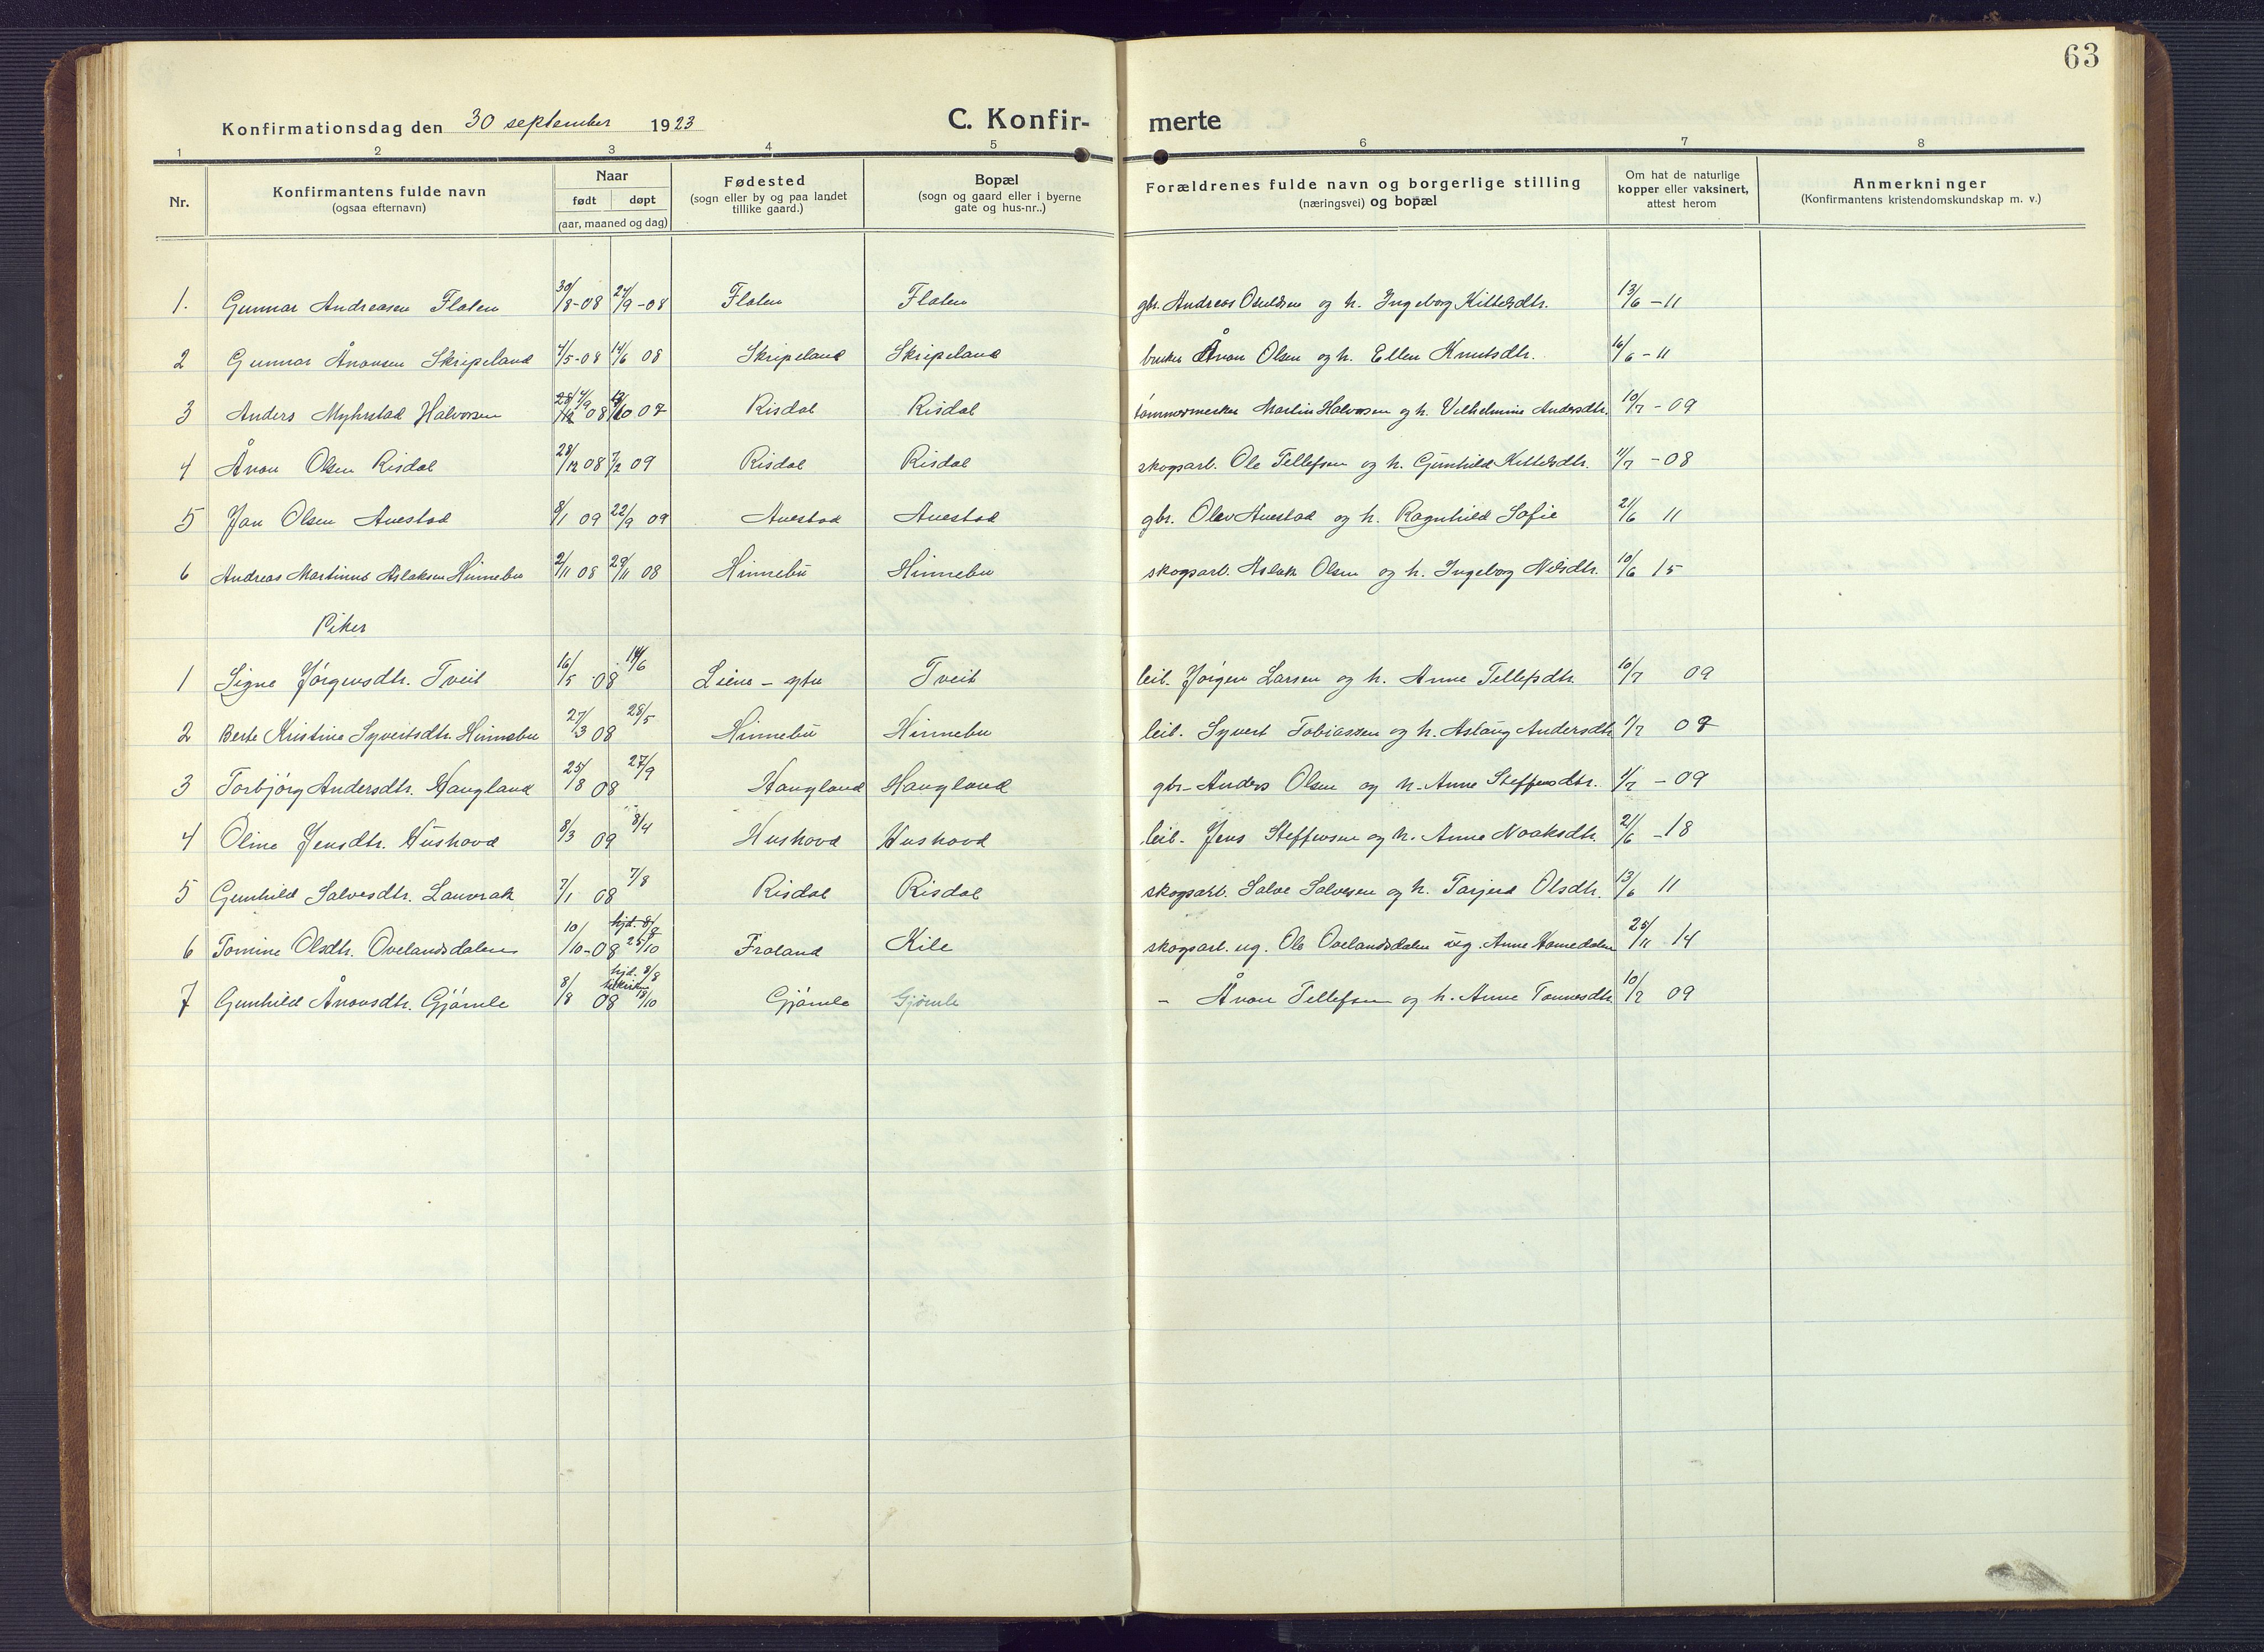 63
Konfirmationsdag den 30 september 1923 C. Konfir- merte
1 2 3 4 5 6 7 8
Nr. Konfirmantens fulde navn (ogsaa efternavn) Naar født døpt (aar, maaned og dag) Fødested (sogn eller by og paa landet tillike gaard.) Bopæl (sogn og gaard eller i byerne gate og hus-nr..) Forældrenes fulde navn og borgerlige stilling (næringsvei) og bopæl Om hat de naturlige kopper eller vaksinert, attest herom Anmerkninger (Konfirmantens kristendomskundskap m. v.)
1. Gunnar Andreasen Flaten 30/8-08 27/9-08 Flaten Flaten gbr. Andreas Osuldsen og h. Ingeborg Kittelsdtr. 13/6-11
2 Gunnar Ånonsen Skripeland 4/5-08 14/6 08 Skripeland Skripeland bruker Ånon Olsen og h. Ellen Knutsdtr. 16/6-11
3 Anders Myhrstad Halvorsen 08 Risdal Risdal tømmermerker Martin Halvorsen og h. Vilhelmine Andersdtr. 10/7-09
4 Ånon Olsen Risdal 28/12 08 7/2 09 Risdal Risdal skogsarb. Ole Tellefsen og h. Gunhild Kittelsdtr. 11/7-08
5 Jan Olsen Auestad 8/1 09 22/9 09 Auestad Auestad gbr. Olav Auestad og h. Ragnhild Sofie 21/6 11
6 Andreas Martinus Aslaksen Hinnebu 2/11 08 29/11 08 Hinnebu Hinnebu skogsarb. Aslak Olsen og h. Ingeborg Nilsdtr. 10/6 15
Piker
1 Signe Jørgensdtr. Tveit 16/5 08 14/6 Liene - Tveit leil. Jørgen Larsen og h. Anne Tellefsdtr. 10/7 09
2 Berte Kristine Syvertsdtr. Hinnebu 27/3 08 28/5 Hinnebu Hinnebu leil. Syvert Tobiassen og h. Aslaug Andersdtr. 1/7 09
3 Torbjørg Andersdtr. Haugland 25/8 08 27/9 Haugland Haugland gbr. Anders Olsen og h. Anne Steffensdtr. 1/7-09
4 Oline Jensdtr. Hushovd 8/3 09 8/4 Hushovd Hushovd leil. Jens Steffensen og h. Anne Noaksdtr. 21/6-18
5 Gunhild Salvesdtr. Lauvrak 7/1 08 7/8 Risdal Risdal skogsarb. Salve Salvesen og h. Tarjerd Olsdtr. 13/6 11
6 Tomine Olsdtr. Ovelandsdalen 10/10-08 25/10 Froland Kile skogsarb. ug. Ole Ovelandsdalen ug. Anne Homedalen 25/11 14
7 Gunhild Ånonsdtr. Gjömle 8/8 08 hjd. 8/8 18/10 Gjömle Gjömle - Ånon Tellefsen og h. Anne Tomesdtr. 10/7 09